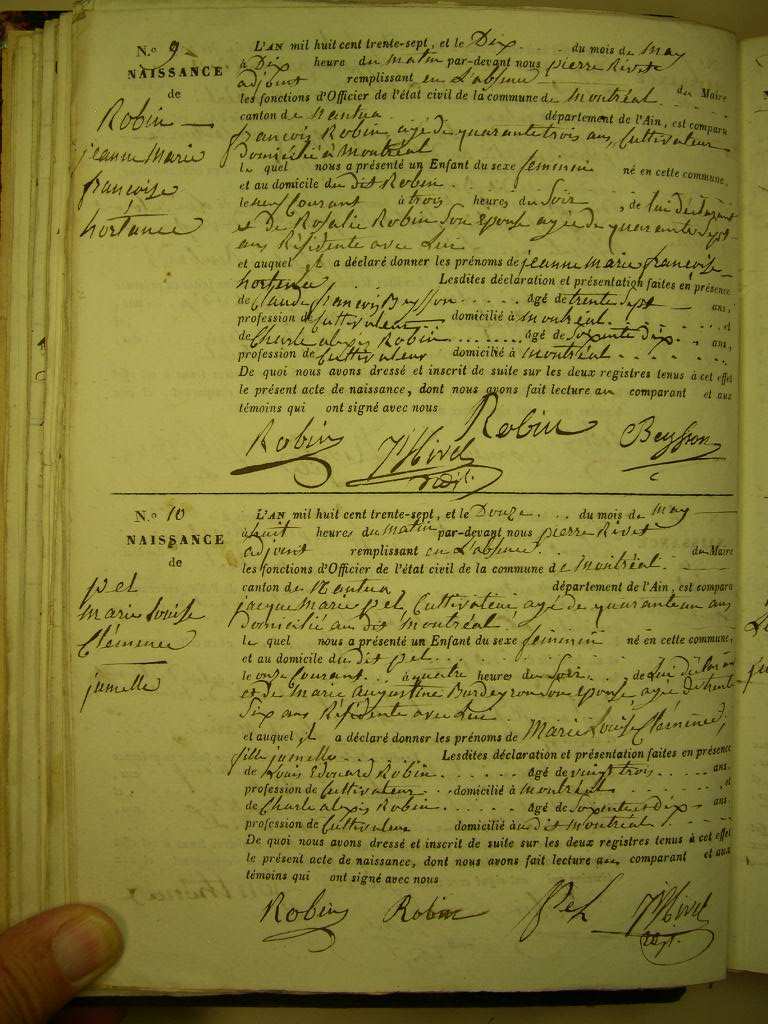 N.o 9
NAISSANCE
de
Robin
jeanne Marie
francoise
hortance
L'AN mil huit cent trente-sept, et le Dix du mois de May
à Dix heure du matin par-devant nous pierre Rivet
adjoint remplissant en L'absence du Maire
les fonctions d'Officier de l'état civil de la commune de Montréal
canton de Nantua département de l'Ain, est comparu
francois Robin agé de quarante trois ans, Cultivateur
Domicilié à Montréal
le quel nous a présenté un Enfant du sexe feminin né en cette commune,
et au domicile du dit Robin
le neuf Courant à trois heures du Soir, de lui déclarant
et De Rosalie Robin Son Epouse agée de quarante sept
ans Résidente avec Lui
et auquel il a déclaré donner les prénoms de jeanne Marie francoise
hortence Lesdites déclaration et présentation faites en présence
de Claude francois Beysson âgé de trente sept ans,
profession de Cultivateur domicilié à Montréal et
de Charle alexis Robin âgé de Soixente dix ans,
profession de Cultivateur domicilié à Montréal
De quoi nous avons dressé et inscrit de suite sur les deux registres tenus à cet effet
le présent acte de naissance, dont nous avons fait lecture au comparant et aux
témoins qui ont signé avec nous
Robin
Robin
Beysson
PRivet
adjt.
N.o 10
NAISSANCE
de
pel
Marie Louise
Clémence
jumelle
L'AN mil huit cent trente-sept, et le Douze du mois de May
à huit heures du Matin par-devant nous pierre Rivet
adjoint remplissant en L'absence du Maire
les fonctions d'Officier de l'état civil de la commune de Montréal
canton de Nantua département de l'Ain, est comparu
jacque Marie pel, Cultivateur agé de quarante un ans
Domicilié au dit Montréal
le quel nous a présenté un Enfant du sexe feminin né en cette commune,
et au domicile du dit pel
le onze Courant à quatre heures du Soir, de Lui déclarant
et de Marie Augustine Son epouse agée de trente
Six ans Résidente avec Lui
et auquel il a déclaré donner les prénoms de Marie Louise Clémence,
fille jumelle Lesdites déclaration et présentation faites en présence
de Louis Edouard Robin âgé de vingt trois ans,
profession de Cultivateur domicilié à Montréal, et
de Charle alexis Robin âgé de Soixente et dix ans
profession de Cultivateur domicilié au dit Montréal
De quoi nous avons dressé et inscrit de suite sur les deux registres tenus à cet effet
le présent acte de naissance, dont nous avons fait lecture au comparant et aux
témoins qui ont signé avec nous
Robin
Robin
Pel
PRivet
adjt.